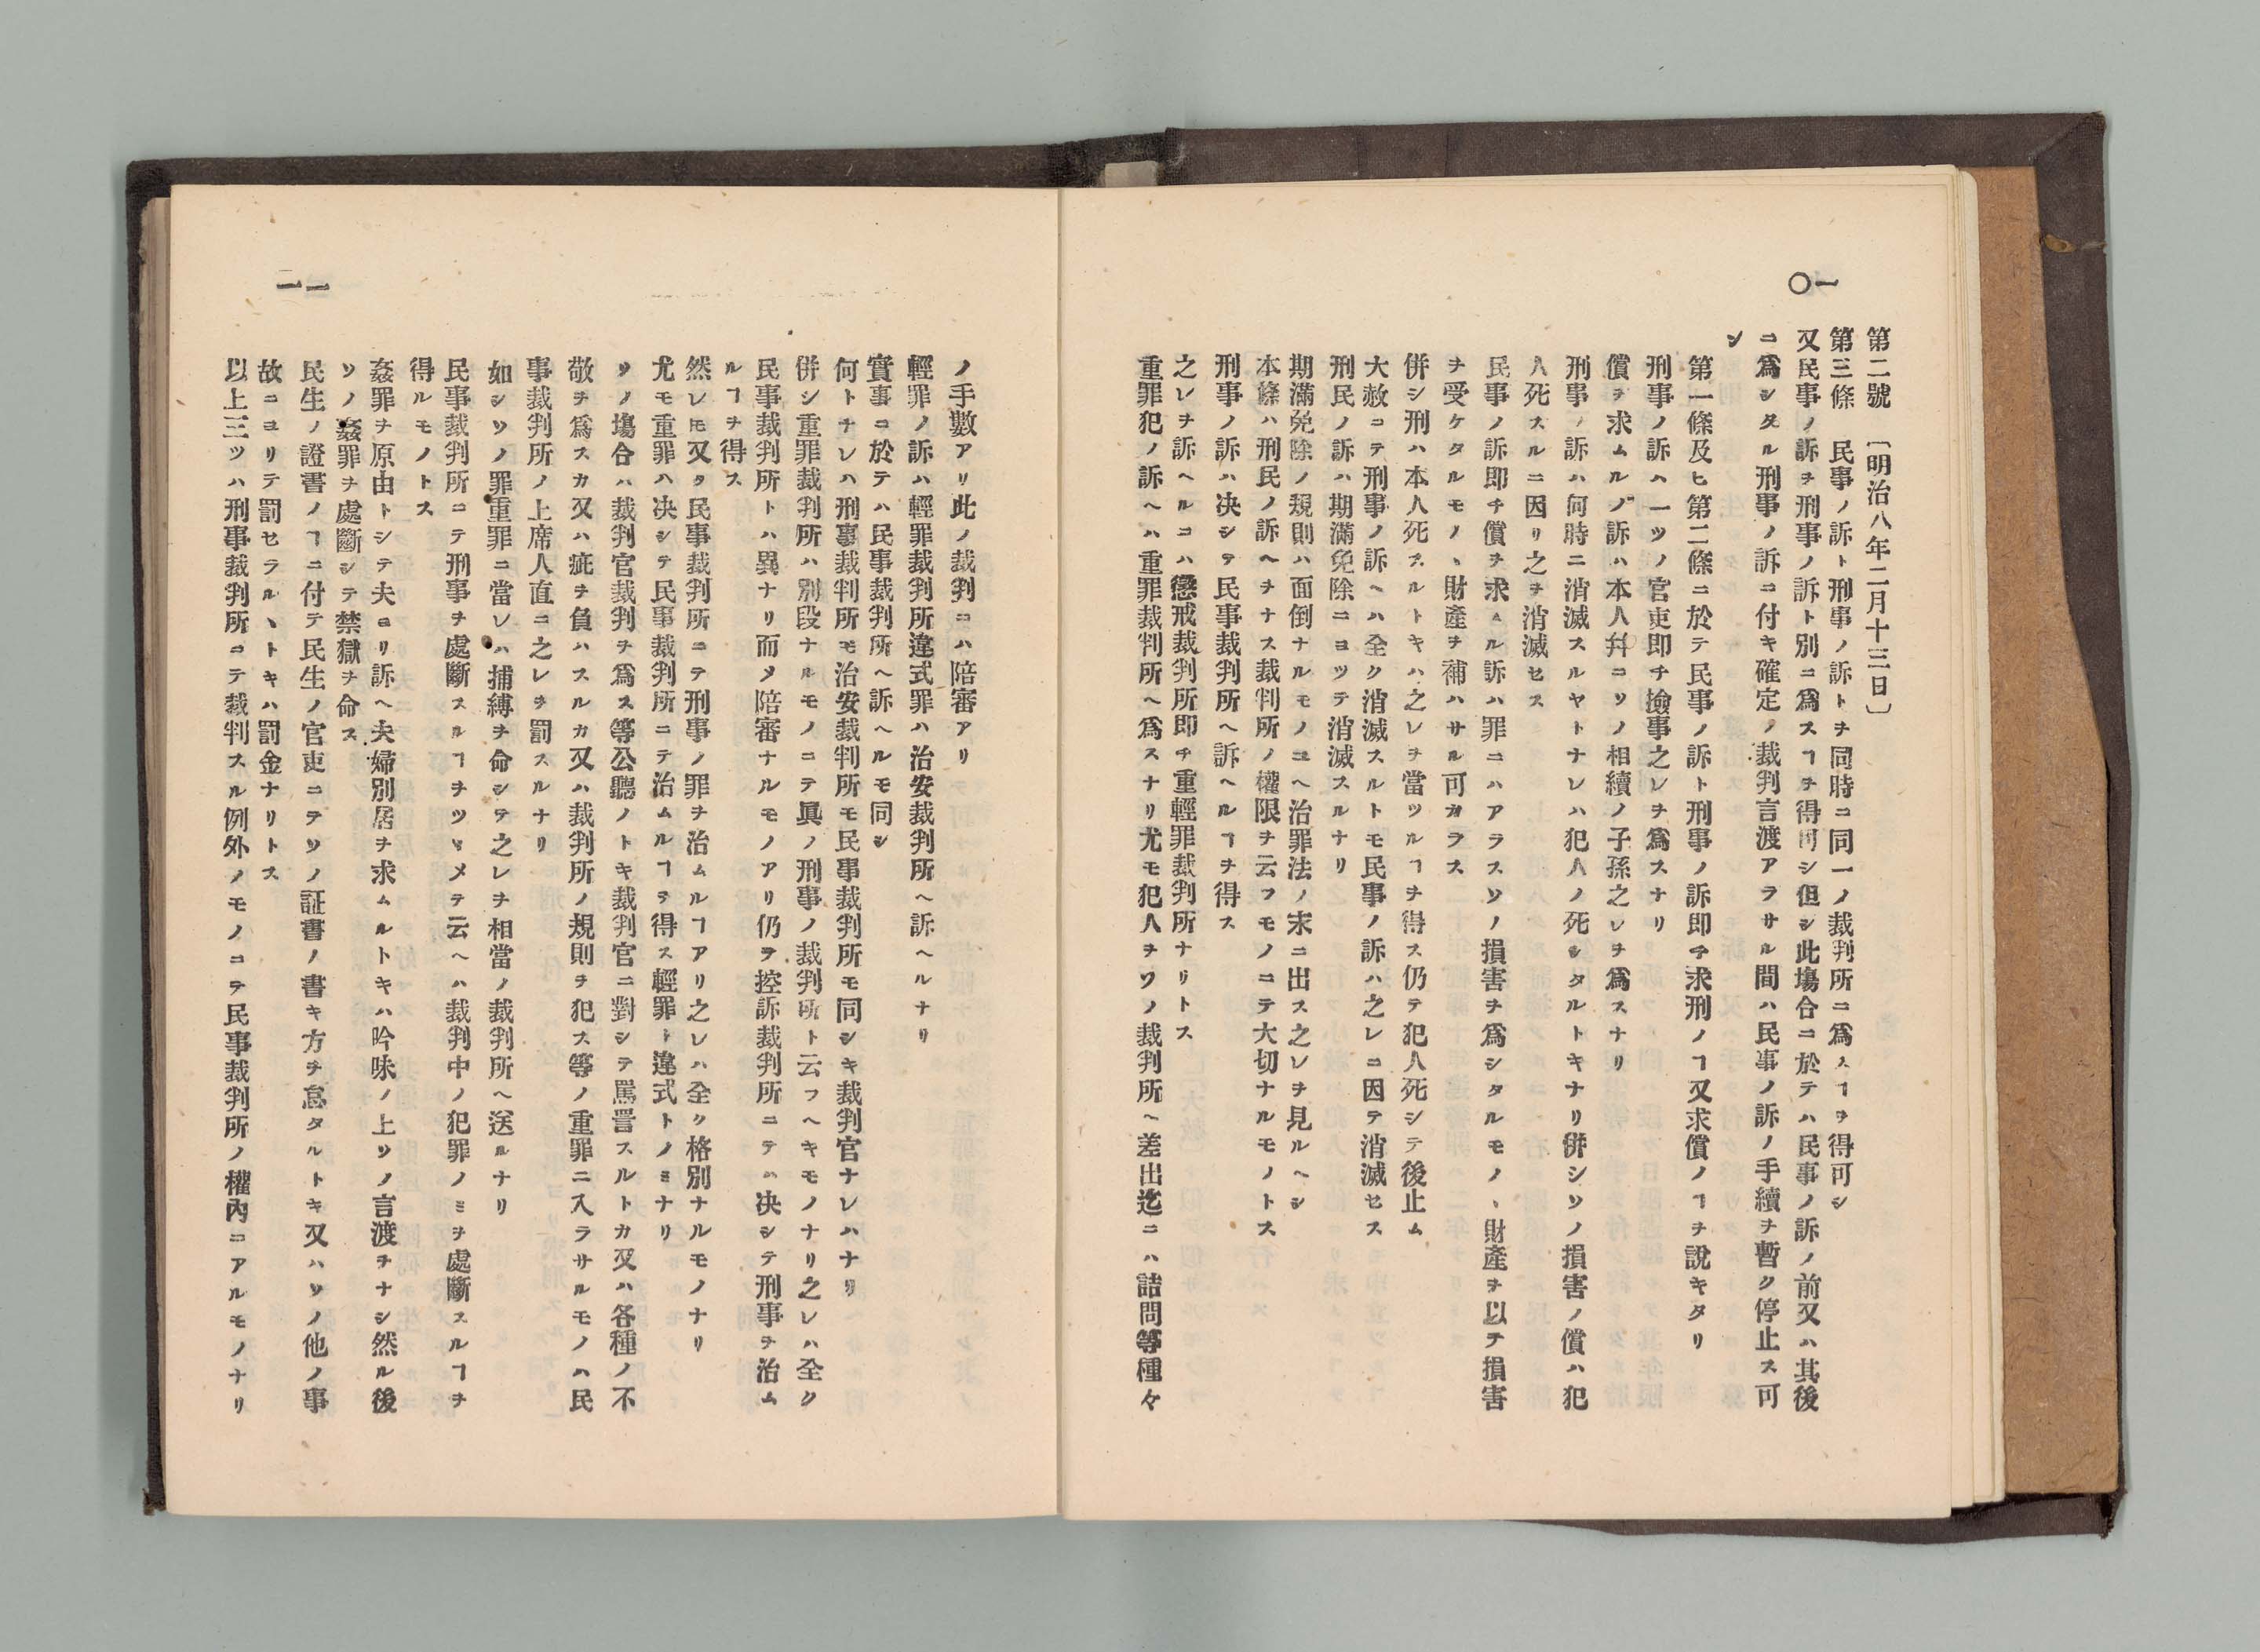 一〇
第二號 〔明治八年二月十三日〕
第三條 民事ノ訴ト刑事ノ訴トヲ同時ニ同一ノ裁判所ニ爲スヿヲ得可シ
又民事ノ訴ヲ刑事ノ訴ト別ニ爲スヿヲ得可シ但シ此塲合ニ於テハ民事ノ訴ノ前又ハ其後
ニ爲シタル刑事ノ訴ニ付キ確定ノ裁判言渡アラサル間ハ民事ノ訴ノ手續ヲ暫ク停止ス可
シ
第一條及ヒ第二條ニ於テ民事ノ訴ト刑事ノ訴即チ求刑ノヿ又求償ノヿヲ說キタリ
刑事ノ訴ハ一ツノ官吏即チ撿事之レヲ爲スナリ
償ヲ求ムルノ訴ハ本人幷ニソノ相續ノ子孫之レヲ爲スナリ
刑事ノ訴ハ何時ニ消滅スルヤトナレハ犯人ノ死シタルトキナリ併シソノ損害ノ償ハ犯
人死スルニ因リ之ヲ消滅セス
民事ノ訴即チ償ヲ求ムル訴ハ罪ニハアラスソノ損害ヲ爲シタルモノヽ財產ヲ以テ損害
ヲ受ケタルモノヽ財產ヲ補ハサル可カラス
併シ刑ハ本人死スルトキハ之レヲ當ツルヿヲ得ス仍テ犯人死シテ後止ム
大赦ニテ刑事ノ訴ヘハ全ク消滅スルトモ民事ノ訴ハ之レニ因テ消滅セス
刑民ノ訴ハ期滿免除ニヨツテ消滅スルナリ
期滿免除ノ規則ハ面倒ナルモノユヘ治罪法ノ末ニ出ス之レヲ見ルヘシ
本條ハ刑民ノ訴ヘヲナス裁判所ノ權限ヲ云フモノニテ大切ナルモノトス
刑事ノ訴ハ决シテ民事裁判所ヘ訴ヘルヿヲ得ス
之レヲ訴ヘルニハ懲戒裁判所即チ重輕罪裁判所ナリトス
重罪犯ノ訴ヘハ重罪裁判所ヘ爲スナリ尤モ犯人ヲソノ裁判所ヘ差出迄ニハ詰問等種々
一一
ノ手數アリ此ノ裁判ニハ陪審アリ
輕罪ノ訴ハ輕罪裁判所違式罪ハ治安裁判所ヘ訴ヘルナリ
實事ニ於テハ民事裁判所ヘ訴ヘルモ同シ
何トナレハ刑事裁判所モ治安裁判所モ民事裁判所モ同シキ裁判官ナレハナリ
併シ重罪裁判所ハ別段ナルモノニテ眞ノ刑事ノ裁判所ト云フヘキモノナリ之レハ全ク
民事裁判所トハ異ナリ而メ陪審ナルモノアリ仍テ控訴裁判所ニテハ决シテ刑事ヲ治ム
ルヿヲ得ス
然レ𪜈又タ民事裁判所ニテ刑事ノ罪ヲ治ムルヿアリ之レハ全ク格別ナルモノナリ
尤モ重罪ハ决シテ民事裁判所ニテ治ムルヿヲ得ス輕罪ト違式トノミナリ
ソノ塲合ハ裁判官裁判ヲ爲ス等公聽ノトキ裁判官ニ對シテ罵詈スルトカ又ハ各種ノ不
敬ヲ爲スカ又ハ疵ヲ負ハスルカ又ハ裁判所ノ規則ヲ犯ス等ノ重罪ニ入ラサルモノハ民
事裁判所ノ上席人直ニ之レヲ罰スルナリ
如シソノ罪重罪ニ當レハ捕縛ヲ命シテ之レヲ相當ノ裁判所ヘ送ルナリ
民事裁判所ニテ刑事ヲ處斷スルヿヲツヾメテ云ヘハ裁判中ノ犯罪ノミヲ處斷スルヿヲ
得ルモノトス
姦罪ヲ原由トシテ夫ヨリ訴ヘ夫婦別居ヲ求ムルトキハ吟味ノ上ソノ言渡ヲナシ然ル後
ソノ姦罪ヲ處斷シテ禁獄ヲ命ス
民生ノ證書ノヿニ付テ民生ノ官吏ニテソノ証書ノ書キ方ヲ怠タルトキ又ハソノ他ノ事
故ニヨリテ罰セラルヽトキハ罰金ナリトス
以上三ツハ刑事裁判所ニテ裁判スル例外ノモノニテ民事裁判所ノ權內ニアルモノナリ